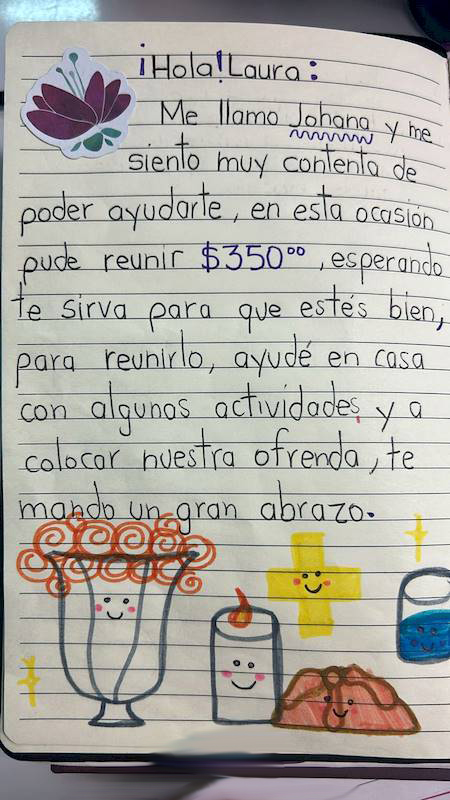 ¡Hola! Laura:
Me llamo Johana y me
siento muy contenta de
poder ayudarte, en esta ocasión
pude reunir $350⁰⁰, esperando
te sirva para que estés bien,
para reunirlo, ayudé en casa
con algunas actividades, y a
colocar nuestra ofrenda, te
mando un gran abrazo.